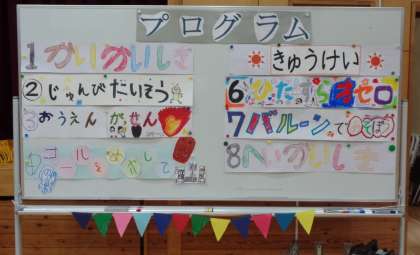 プログラム
1 かいかいしき
② じゅんびたいそう
3 おうえんがっせん
4 ゴールをめざして
きゅうけい
6 ひたすらオセロ
7 バルーンであそぼう
8 へいかいしき